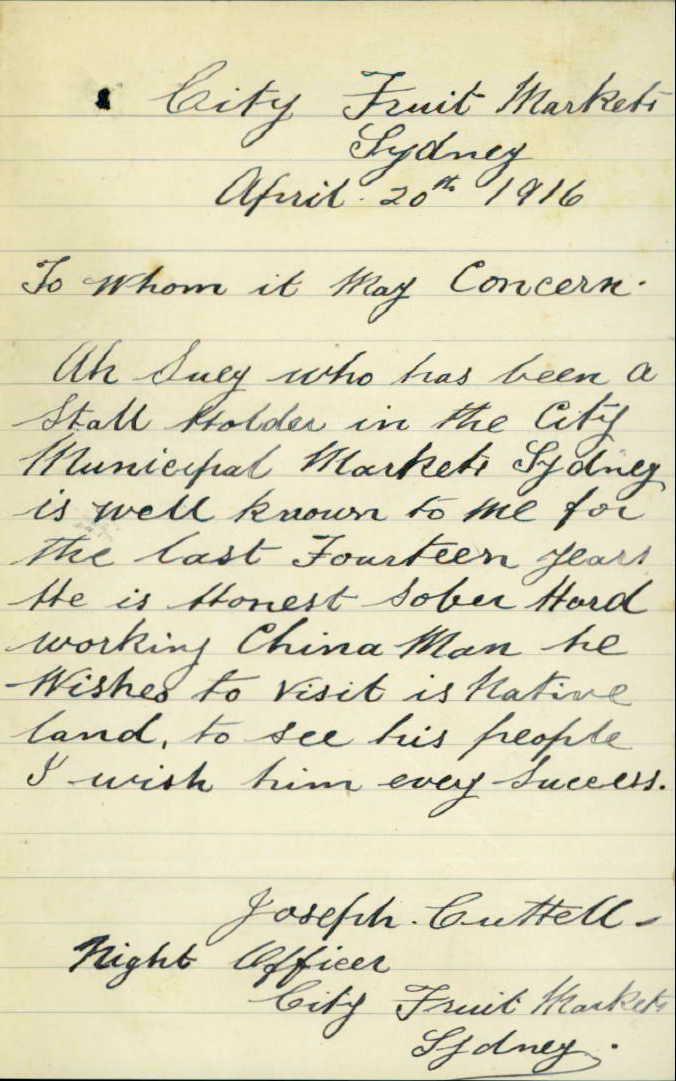 City Fruit Markets
Sydney
April. 20th 1916
To Whom it May Concern.
Ah Suey who has been a
Stall Holder in the City
Municipal Markets Sydney
is well known to me for
the last Fourteen years
He is Honest Sober Hard
working China Man he
Wishes to visit is Native
land, to see his people
I wish him every Success.
Joseph. Cuttell
Night Officer
City Fruit Markets
Sydney.